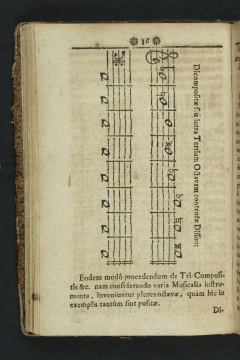 36
Dicompositæ seu intra Tertiam Octavam contentæ Dissonæ
Eodem modô procedendum de Tri-Composi-
tis &c. nam considerando varia Musicalia Instru-
menta, inveniuntur plures octavæ, quàm hîc in
exemplis tantùm sint positæ.
Di-